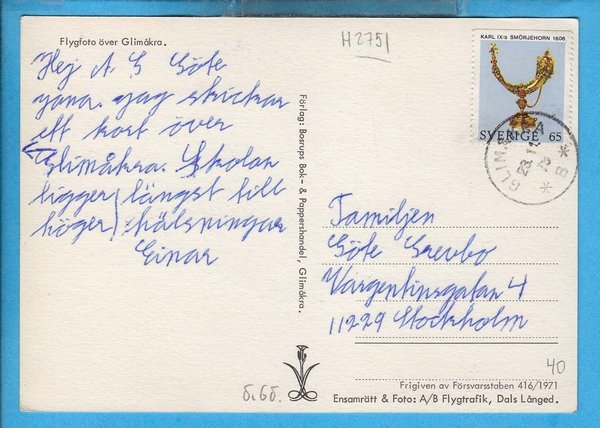 Flygfoto över Glimåkra.
H2751
Hej A G Göte
yona. jag skickar
ett kort över
Glimåkra. Skolan
ligger längst till
höger) hälsningar
Einar
Förlag: Bosrups Bok- & Pappershandel, Glimåkra.
KARL IX:s SMÖRJEHORN 1606
SVERIGE 65
GLIMÅKRA
23.11
B
Familjen
Göte Grevbo
Vargentinsgatan 4
11229 Stockholm
40
6.60.
Frigiven av Försvarsstaben 416/1971
Ensamrätt & Foto: A/B Flygtrafik, Dals Långed.